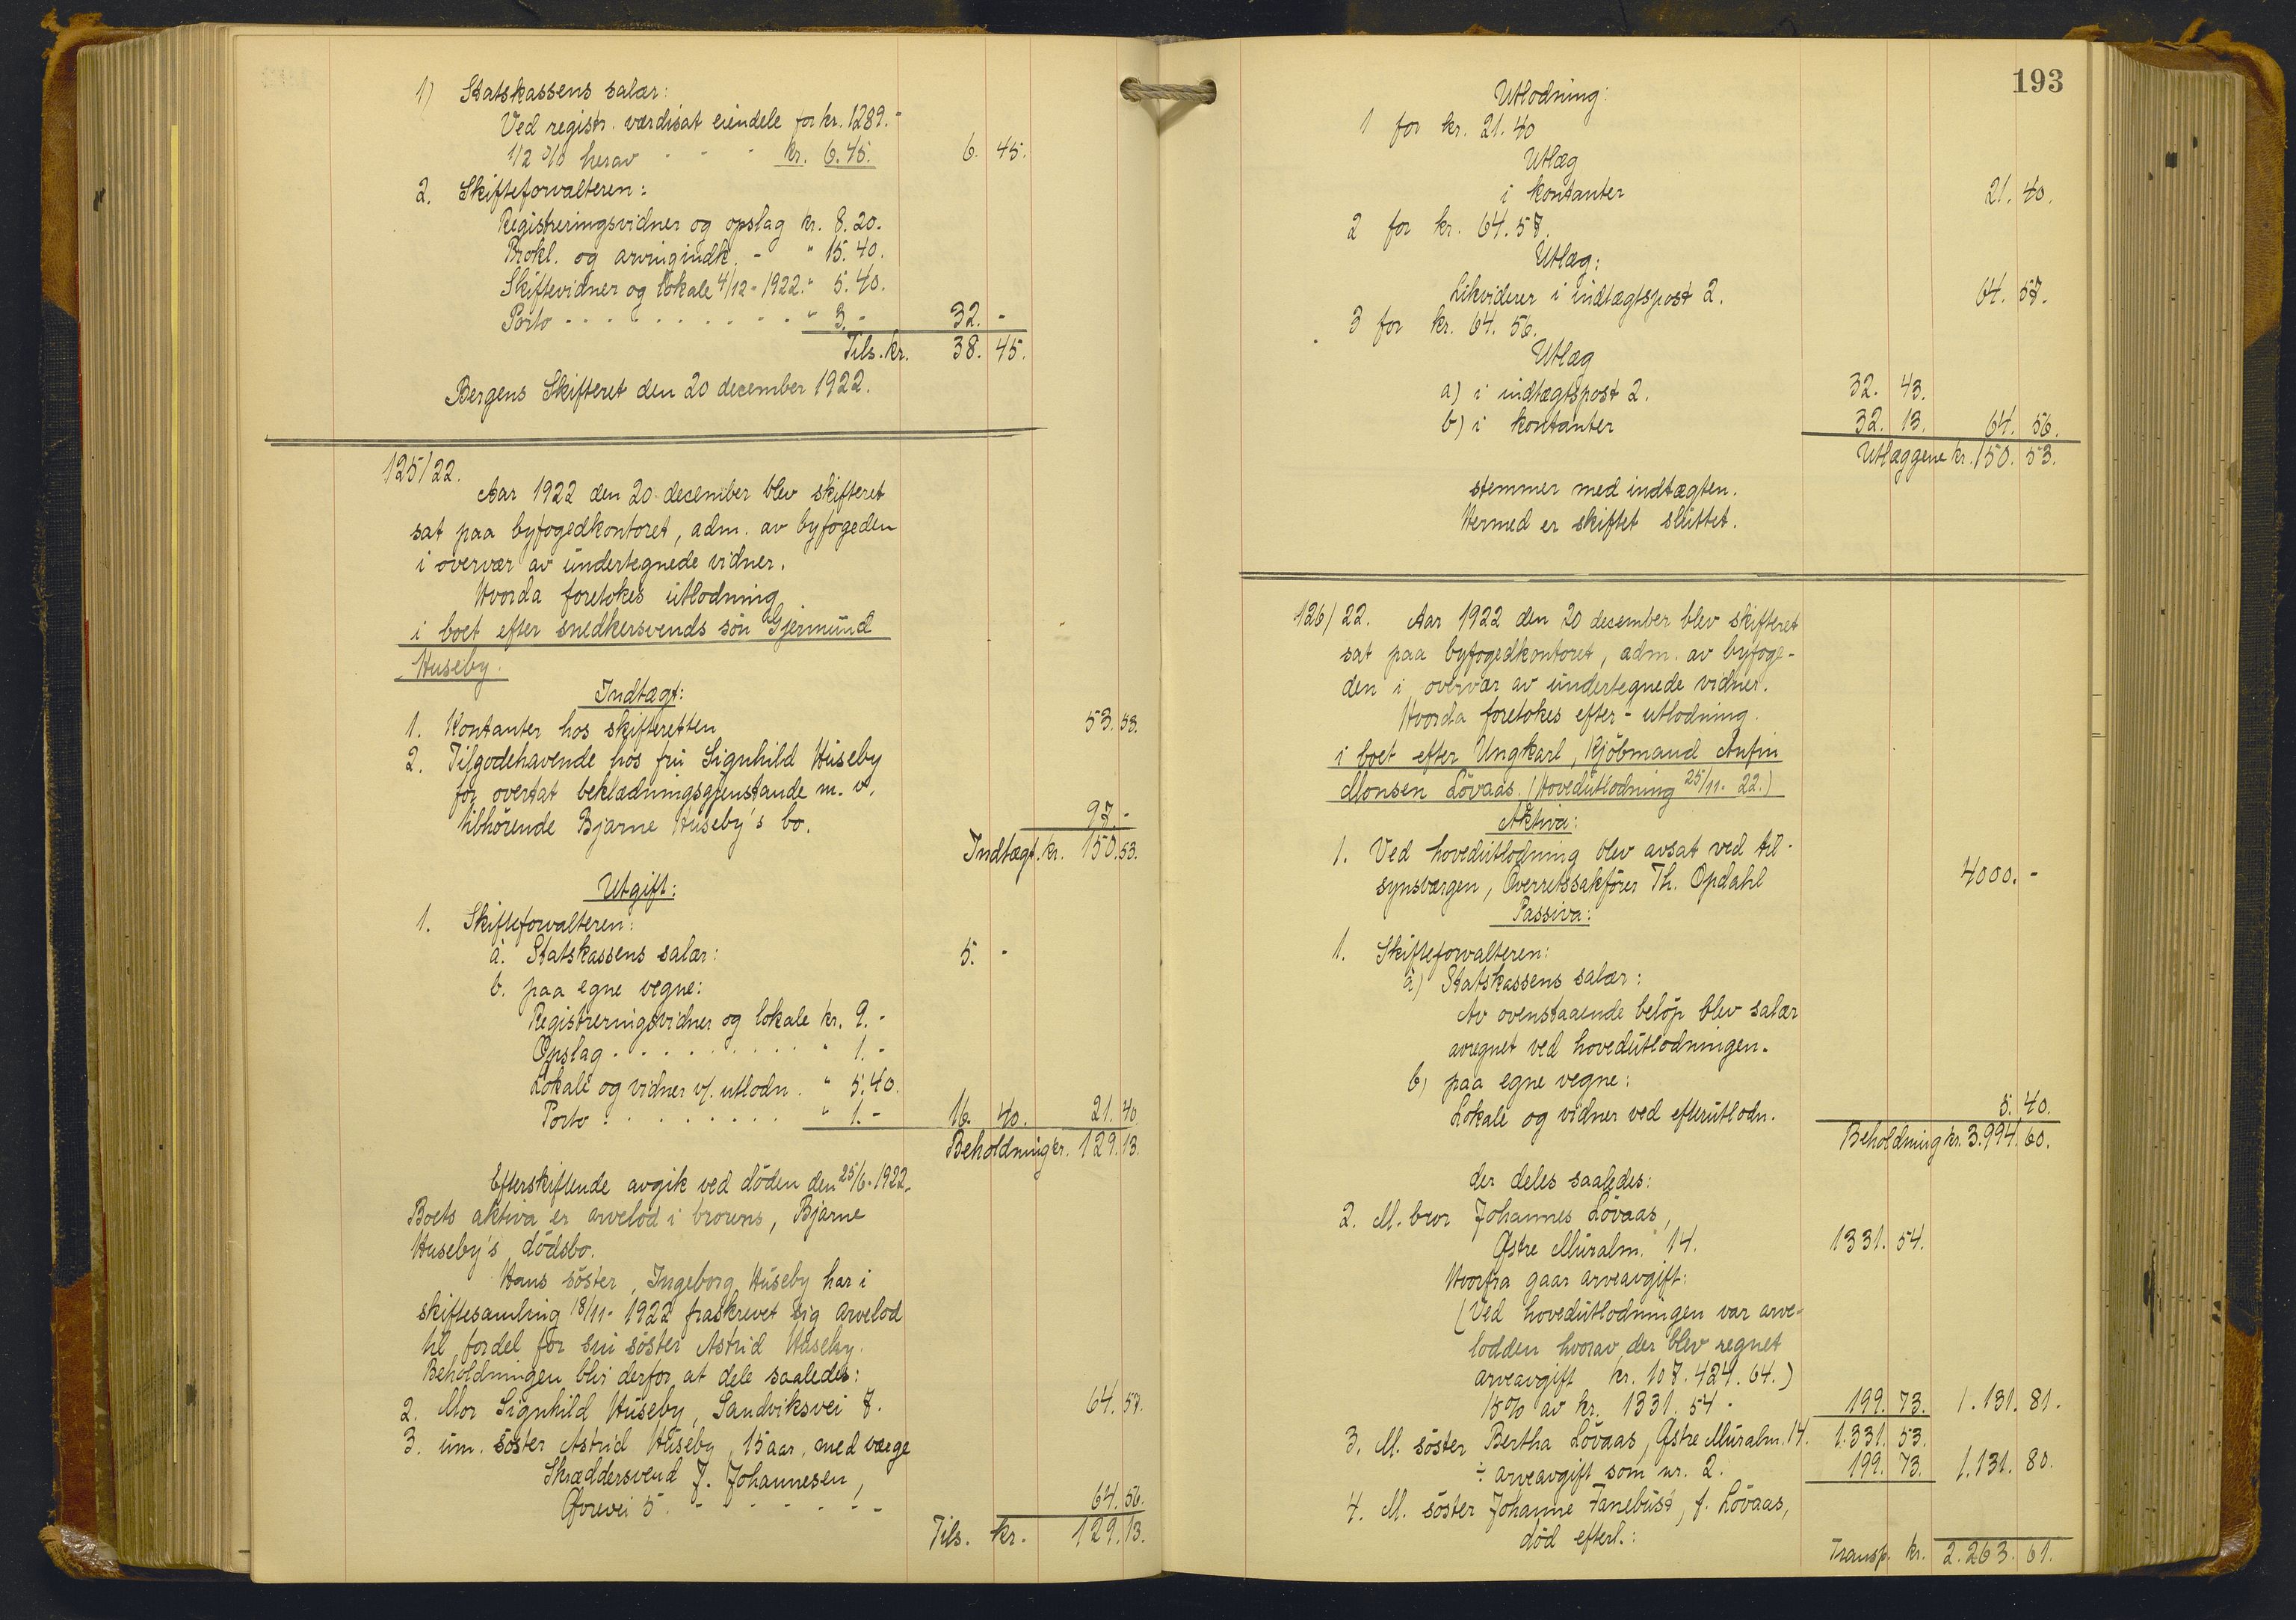 1) Statskassens salær:
Ved registr. værdisat eiendele for kr. 1289.-
1/2 % herav - - - kr. 6.45. 6. 45.
2. Skifteforvalteren:
Registreringsvidner og opslag kr. 8.20.
Prokl. og arvingindk. - " 15.40.
Skiftevidner og lokale 4/12-1922. " 5.40.
Porto - - - - - - - - - - " 3.- 32. -
Tils. kr. 38. 45.
Bergens Skifteret den 20 december 1922.
125/22.
Aar 1922 den 20 december blev skifteret
sat paa byfogedkontoret, adm. av byfogeden
i overvær av undertegnede vidner.
Hvorda foretokes utlodning
i boet efter snedkersvends sön Gjermund
Huseby.
Indtægt:
1. Kontanter hos skifteretten 53. 53.
2. Tilgodehavende hos fru Signhild Huseby
for overtat beklædningsgjenstande m. v.
tilhörende Bjarne Huseby's bo. 97. -
Indtægt. kr. 150. 53.
Utgift:
1. Skifteforvalteren:
a. Statskassens salær: 5. -
b. paa egne vegne:
Registreringsvidner og lokale kr. 9.-
Opslag . . . . . . . . . . " 1.-
Lokale og vidner v/. utlodn. " 5.40.
Porto . . . . . . . . . " 1.- 16. 40. 21. 40
Beholdning kr. 129. 13.
Efterskiftende avgik ved döden den 25/6-1922.
Boets aktiva er arvelod i brorens, Bjarne
Huseby's dödsbo.
Hans söster, Ingeborg Huseby har i
skiftesamling 18/11-1922 fraskrevet sig arvelod
til fordel for sin söster Astrid Huseby.
Beholdningen blir derfor at dele saaledes:
2. Mor Signhild Huseby, Sandviksvei 7. 64. 57.
3. um. söster Astrid Huseby, 15 aar, med værge
Skræddersvend J. Johannesen,
Øvrevei 5. - - - - - - 64. 56.
Tils. kr. 129. 13.
193
Utlodning:
1 for kr. 21.40
Utlæg
i kontanter 21. 40.
2 for kr. 64.57.
Utlæg:
Likviderer i indtægtspost 2. 64. 57.
3 for kr. 64.56.
Utlæg
a) i indtægtspost 2. 32. 43.
b) i kontanter 32. 13. 64. 56.
Utlæggene kr. 150. 53.
stemmer med indtægten.
Hermed er skiftet sluttet.
126/22. Aar 1922 den 20 december blev skifteret
sat paa byfogedkontoret, adm. av byfoge-
den i overvær av undertegnede vidner.
Hvorda foretokes efter-utlodning.
i boet efter Ungkarl, Kjöbmand Anfin
Monsen Lövaas. (Hovedutlodning 25/11-22.)
Aktiva:
1. Ved hovedutlodning blev avsat ved til-
synsværgen, Overretssakförer Th. Opdahl 4000. -
Passiva:
1. Skifteforvalteren:
a) Statskassens salær:
Av ovenstaaende belöp blev salær
avregnet ved hovedutlodningen.
b) paa egne vegne:
Lokale og vidner ved efterutlodn. 5. 40.
Beholdning kr. 3.994. 60.
der deles saaledes:
2. M. bror Johannes Lövaas,
Østre Muralm. 14. 1331. 54.
Hvorfra gaar arveavgift:
(Ved hovedutlodningen var arve-
lodden hvorav der blev regnet
arveavgift kr. 107.424.64.)
15% av kr. 1331.54 - 199. 73. 1.131. 81.
3. M. söster Bertha Lövaas, Østre Muralm. 14. 1.331. 53.
÷ arveavgift som nr. 2. 199. 73. 1.131. 80.
4. M. söster Johanne Fanebust, f. Lövaas,
död efterl.:
Transp. kr. 2.263. 61.